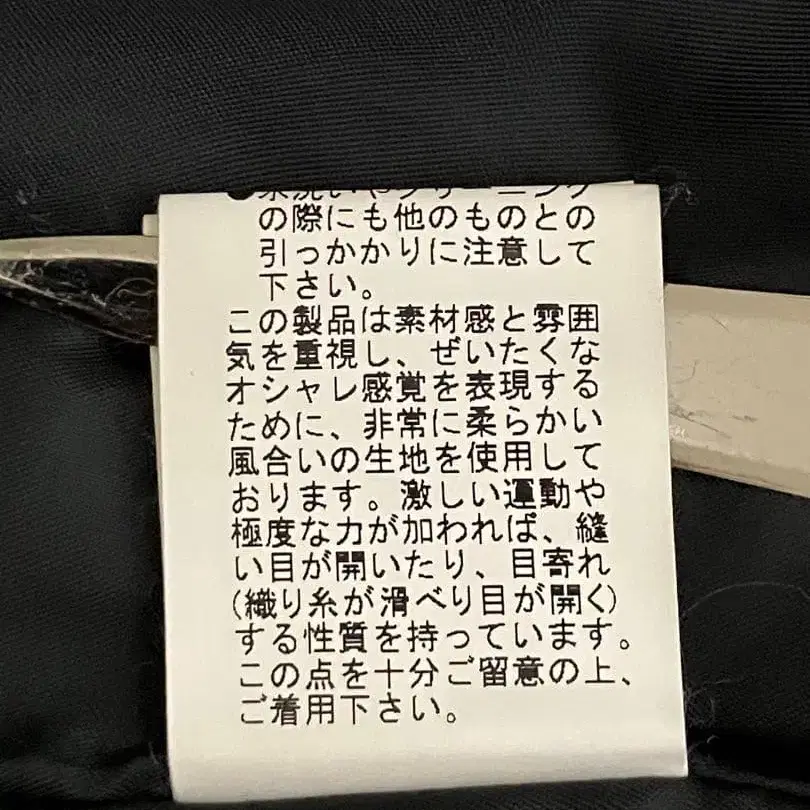 ●水洗いやクリーニング
の際にも他のものとの
引っかかりに注意して
下さい。
この製品は素材感と雰囲
気を重視し、ぜいたくな
オシャレ感覚を表現する
ために、非常に柔らかい
風合いの生地を使用して
おります。激しい運動や
極度な力が加われば、縫
い目が開いたり、目寄れ
(織り糸が滑べり目が開く)
する性質を持っています。
この点を十分ご留意の上、
ご着用下さい。